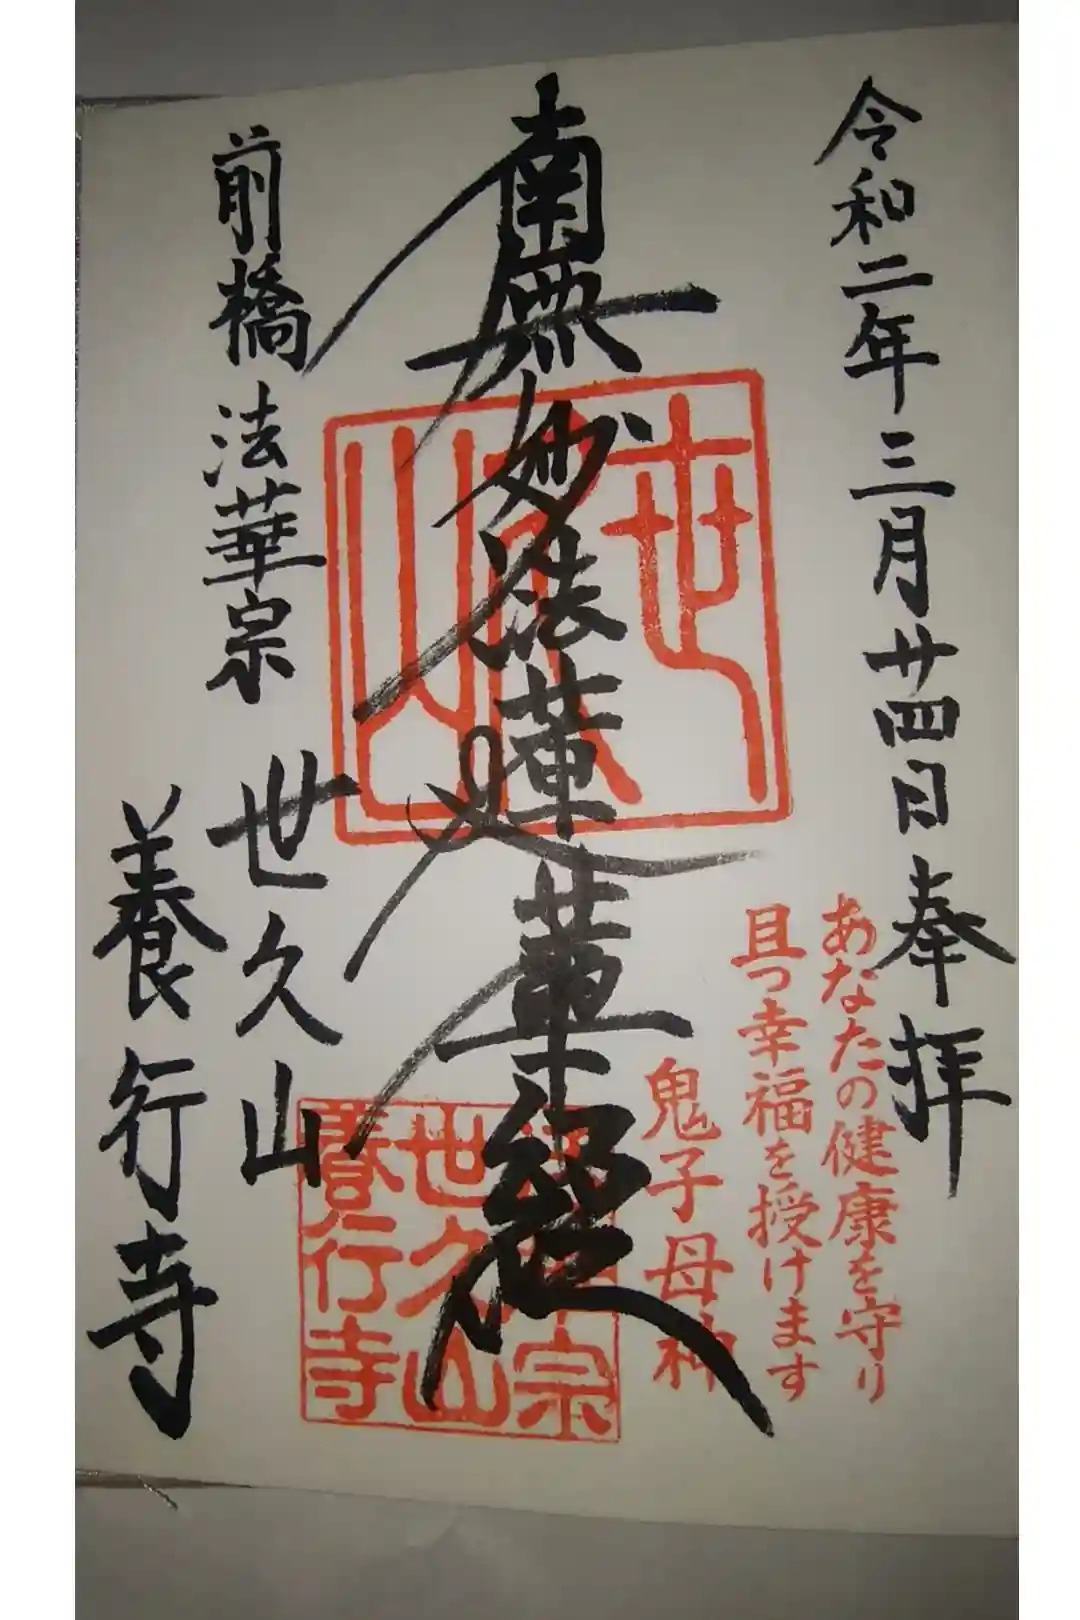 令和二年三月廿四日奉拝
あなたの健康を守り
且つ幸福を授けます
鬼子母神
南無妙法蓮華経
世久山
法華宗
世久山
養行寺
前橋法華宗
世久山
養行寺